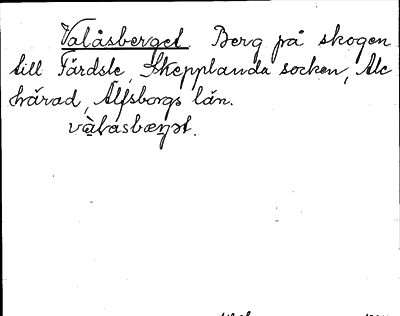 Valåsberget Berg på skogen
till Färdsle, Skepplanda socken, Ale
härad, Älfsborgs län.